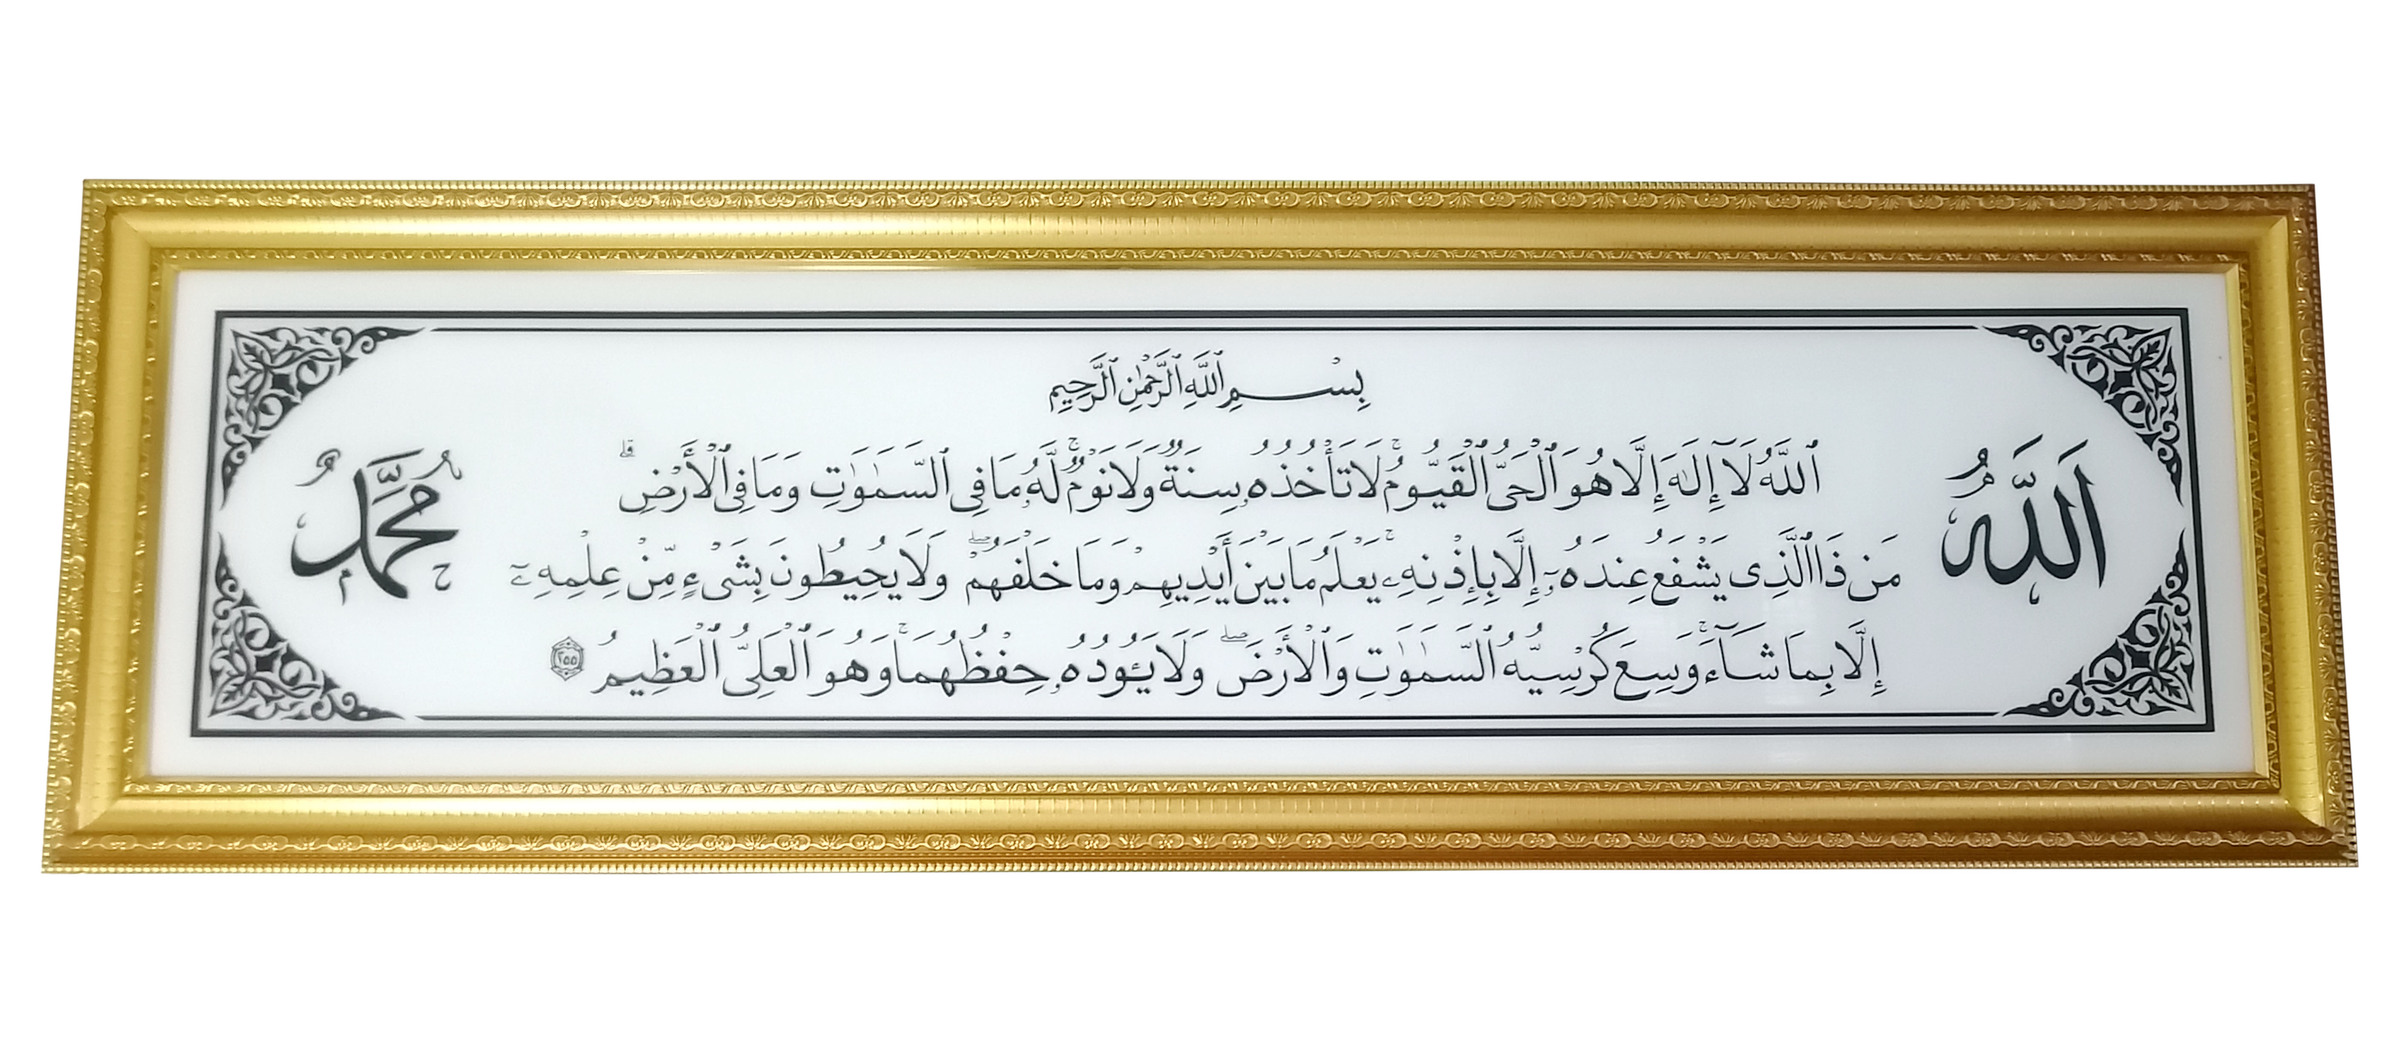 بِسْمِ ٱللَّهِ ٱلرَّحْمَٰنِ ٱلرَّحِيمِ
ٱللَّهُ
ٱللَّهُ لَآ إِلَٰهَ إِلَّا هُوَ ٱلْحَىُّ ٱلْقَيُّومُ ۚ لَا تَأْخُذُهُۥ سِنَةٌ وَلَا نَوْمٌ ۚ لَّهُۥ مَا فِى ٱلسَّمَٰوَٰتِ وَمَا فِى ٱلْأَرْضِ ۗ
مَن ذَا ٱلَّذِى يَشْفَعُ عِندَهُۥٓ إِلَّا بِإِذْنِهِۦ ۚ يَعْلَمُ مَا بَيْنَ أَيْدِيهِمْ وَمَا خَلْفَهُمْ ۖ وَلَا يُحِيطُونَ بِشَىْءٍ مِّنْ عِلْمِهِۦٓ
إِلَّا بِمَا شَآءَ ۚ وَسِعَ كُرْسِيُّهُ ٱلسَّمَٰوَٰتِ وَٱلْأَرْضَ ۖ وَلَا يَـُٔودُهُۥ حِفْظُهُمَا ۚ وَهُوَ ٱلْعَلِىُّ ٱلْعَظِيمُ ٢٥٥
مُحَمَّدٌ